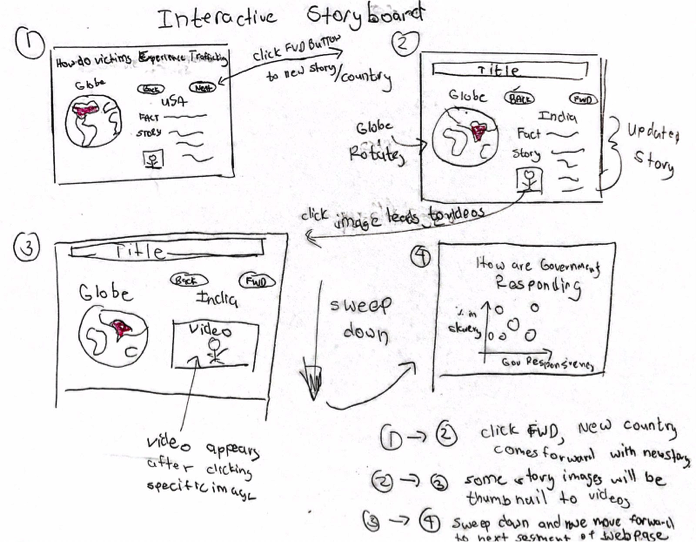 Interactive Storyboard
1
How do victims Experience Trafficking
Globe
Back
Next
USA
FACT
STORY
click FWD BUTTON
to new story/country
2
Title
Globe
BACK
FWD
India
Fact
Story
Globe
Rotates
Updated
Story
click image leads to videos
3
Title
Globe
Back
FWD
India
Video
video appears
after clicking
specific image
sweep
down
4
How are Government
Responding
% in
slavery
Gov Responsivency
1 → 2 click FWD, New country
comes forward with new story
2 → 3 some story images will be
thumbnail to videos
3 → 4 sweep down and we move forward
to next segment of webpage